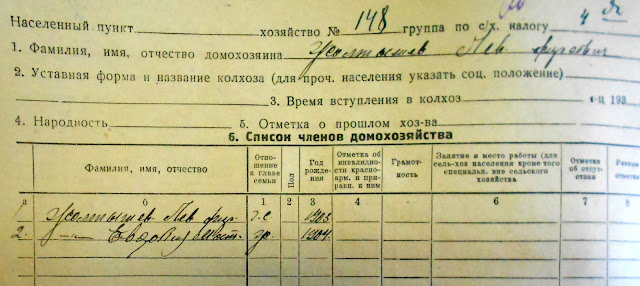 Населенный пункт хозяйство № 148 группа по с/х. налогу 4
1. Фамилия, имя, отчество домохозяина Желтышев Лев
2. Уставная форма и название колхоза (для проч. населения указать соц. положение)
3. Время вступления в колхоз 193
4. Народность 5. Отметка о прошлом хоз-ва
6. Список членов домохозяйства
Фамилия, имя, отчество
Отношение к главе семьи
Пол
Год рождения
Отметка об инвалидности красноарм. и приравн. к ним
Грамотность
Занятие и место работы (для сель-хоз населения кроме того специальн. вне сельского хозяйства
Отметка об отсутствии
а б 1 2 3 4 5 6 7 8
1 Желтышев Лев г.с 1903
2. —"— Евдокия 1904